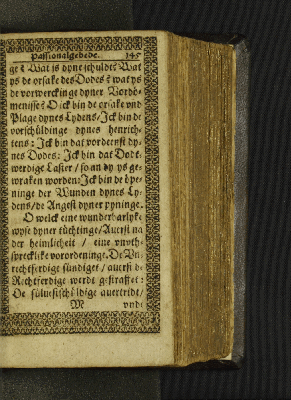 Passionalgebede. 145
ge? Wat is dyne schuldt? Wat
ys de orsake des Dodes? wat ys
de vorwerckinge dyner Vordö-
menisse? O ick bin de orsake vnd
Plage dynes Lydens/ Ick bin de
vorschüldinge dynes henrich-
tens: Ick bin dat vordeenst dy-
nes Dodes: Ick bin dat Dodt-
werdige Laster/ so an dy ys ge-
wraken worden: Ick bin de
ninge der Wunden dynes Ly-
dens/ de Angest dyner pyninge.
O welck eine wunderbarlyke
wyse dyner tüchtinge/ Auerst na
der heimlicheit/ eine vnuth-
sprecklike vorordeninge. De Vn-
rechtferdige sündiget/ auerst de
Rechtferdige werdt gestraffet:
De sülue schüldige auertridt/
M vnde